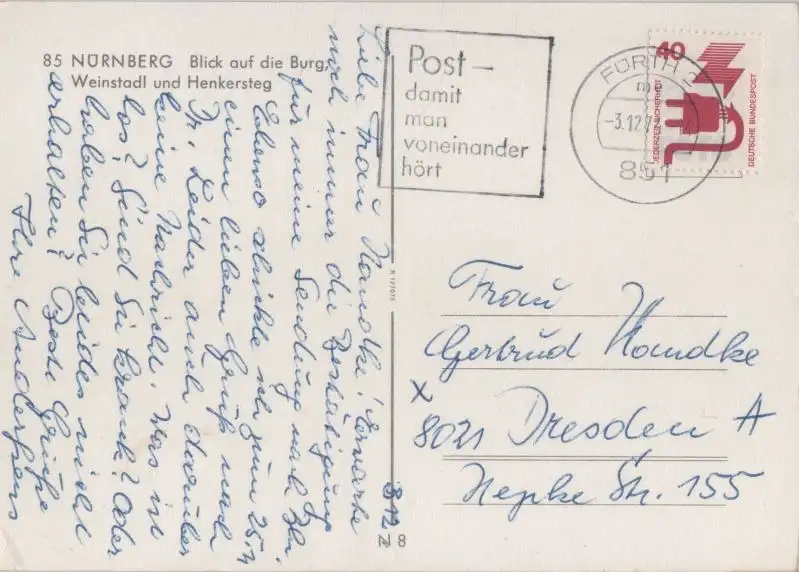 85 NÜRNBERG Blick auf die Burg,
Weinstadl und Henkersteg
Post –
damit
man
voneinander
hört
FÜRTH 2
-3.12.7
85
40
JEDERZEIT SICHERHEIT
DEUTSCHE BUNDESPOST
Liebe Frau Handke! Erwarte
noch immer die Bestätigung
für meine Sendung nach
Ebenso schickte ich zum 25.
einen lieben Gruß nach
Dr. Leider auch darüber
keine Nachricht. Was ist
los? Sind Sie krank? Oder
haben Sie beides nicht
erhalten? Beste Grüße
Ihre
3.12
N 8
Frau
Gertrud Handke
x
8021 Dresden A
Hepke Str. 155